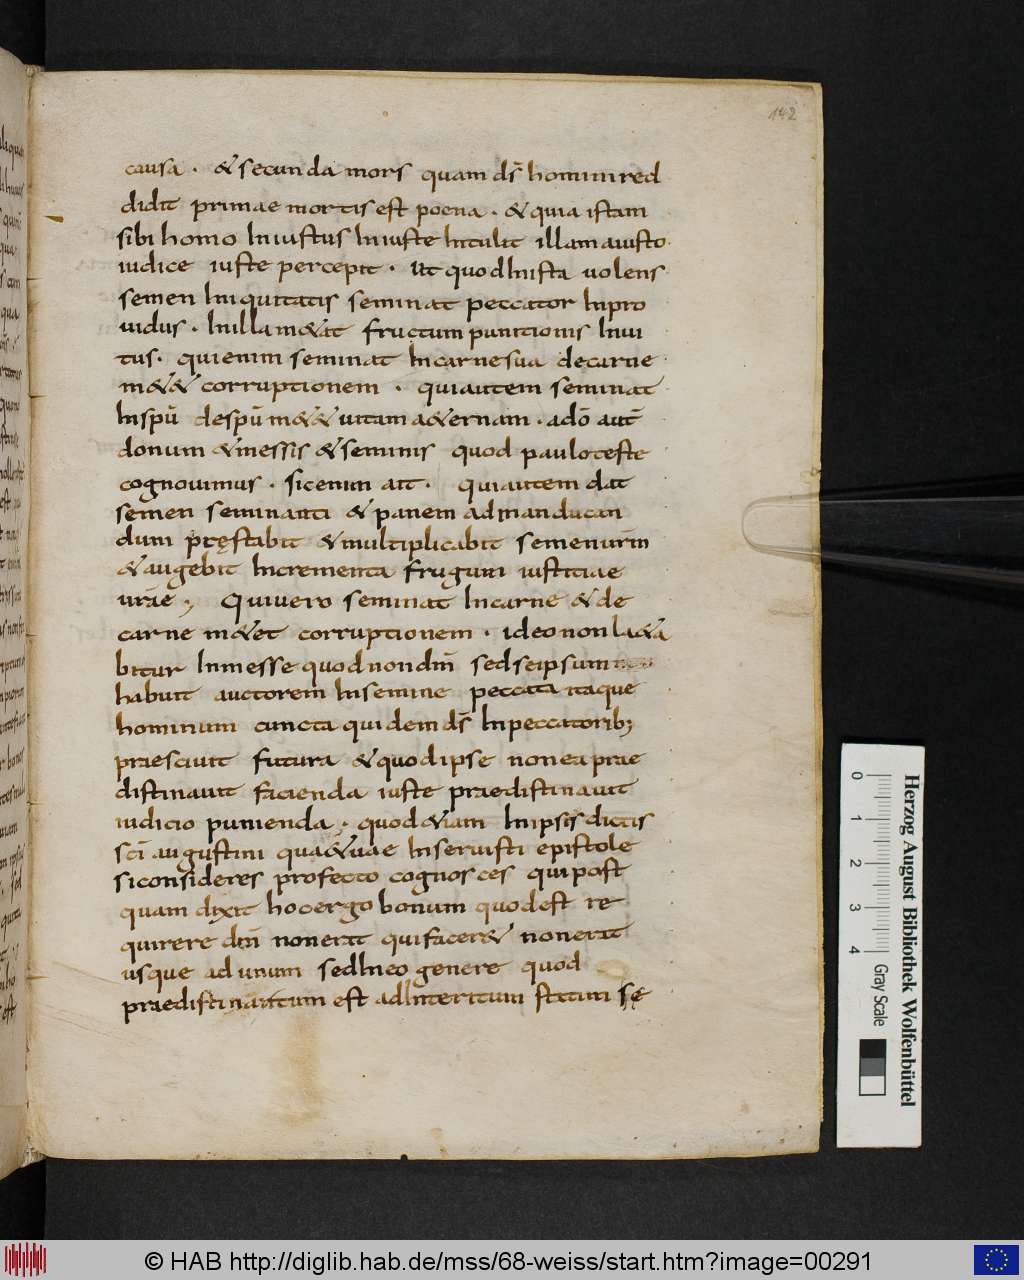 142
causa · & secunda mors quam dс̄ homini red
didit primae mortis est poena · & quia istam
sibi homo iniustus iniuste intulit illam a iusto
iudice iuste percepit · ut quod inista uolens
semen iniquitatis seminat peccator inpro
uidus · in illa m&at fructum punitionis inui
tus · qui enim seminat in carne sua de carne
m&& corruptionem · qui autem seminat
in spū de spū m&& uitam a&ernam · ad dō aut̄
donum & messis & seminis quod paulo teste
cognouimus · sic enim ait · qui autem dat
semen seminanti & panem ad manducan
dum pręstabit & multiplicabit semen ur̄m
& augebit incrementa frugum iustitiae
urāe ; Qui uero seminat in carne & de
carne m&et corruptionem · ideo non l&a
bitur in messe quod non dn̄m sed seipsum
habuit auctorem in semine peccata itaque
hominum cuncta quidem ds̄ in peccatorib;
praesciuit futura & quod ipse non ea prae
distinauit facienda iuste praedistinauit
iudicio punienda · quod &iam in ipsis dictis
sc̄i augustini quae uae inseruisti epistole
si consideres profecto cognosces qui post
quam dixit hoc ergo bonum quod est re
quirere dm̄ non erat qui facer& non erat
usque ad unum sed in eo genere quod
praedistinatum est ad interitum statim sę
Herzog August Bibliothek Wolfenbüttel
0 1 2 3 4 Gray Scale
© HAB http://diglib.hab.de/mss/68-weiss/start.htm?image=00291